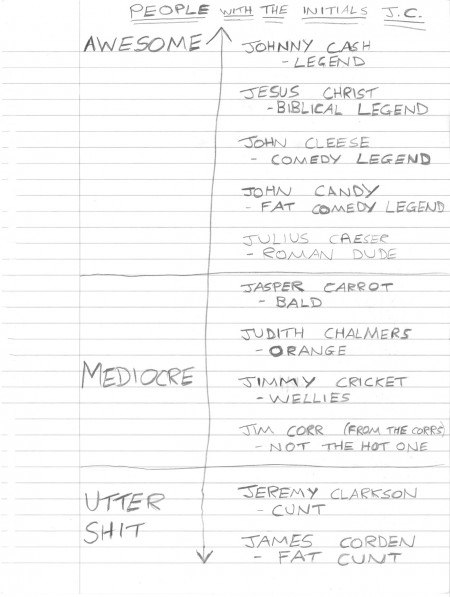 PEOPLE WITH THE INITIALS J.C.
AWESOME
JOHNNY CASH
- LEGEND
JESUS CHRIST
- BIBLICAL LEGEND
JOHN CLEESE
- COMEDY LEGEND
JOHN CANDY
- FAT COMEDY LEGEND
JULIUS CAESER
- ROMAN DUDE
MEDIOCRE
JASPER CARROT
- BALD
JUDITH CHALMERS
- ORANGE
JIMMY CRICKET
- WELLIES
JIM CORR (FROM THE CORRS)
- NOT THE HOT ONE
UTTER
SHIT
JEREMY CLARKSON
- CUNT
JAMES CORDEN
- FAT CUNT